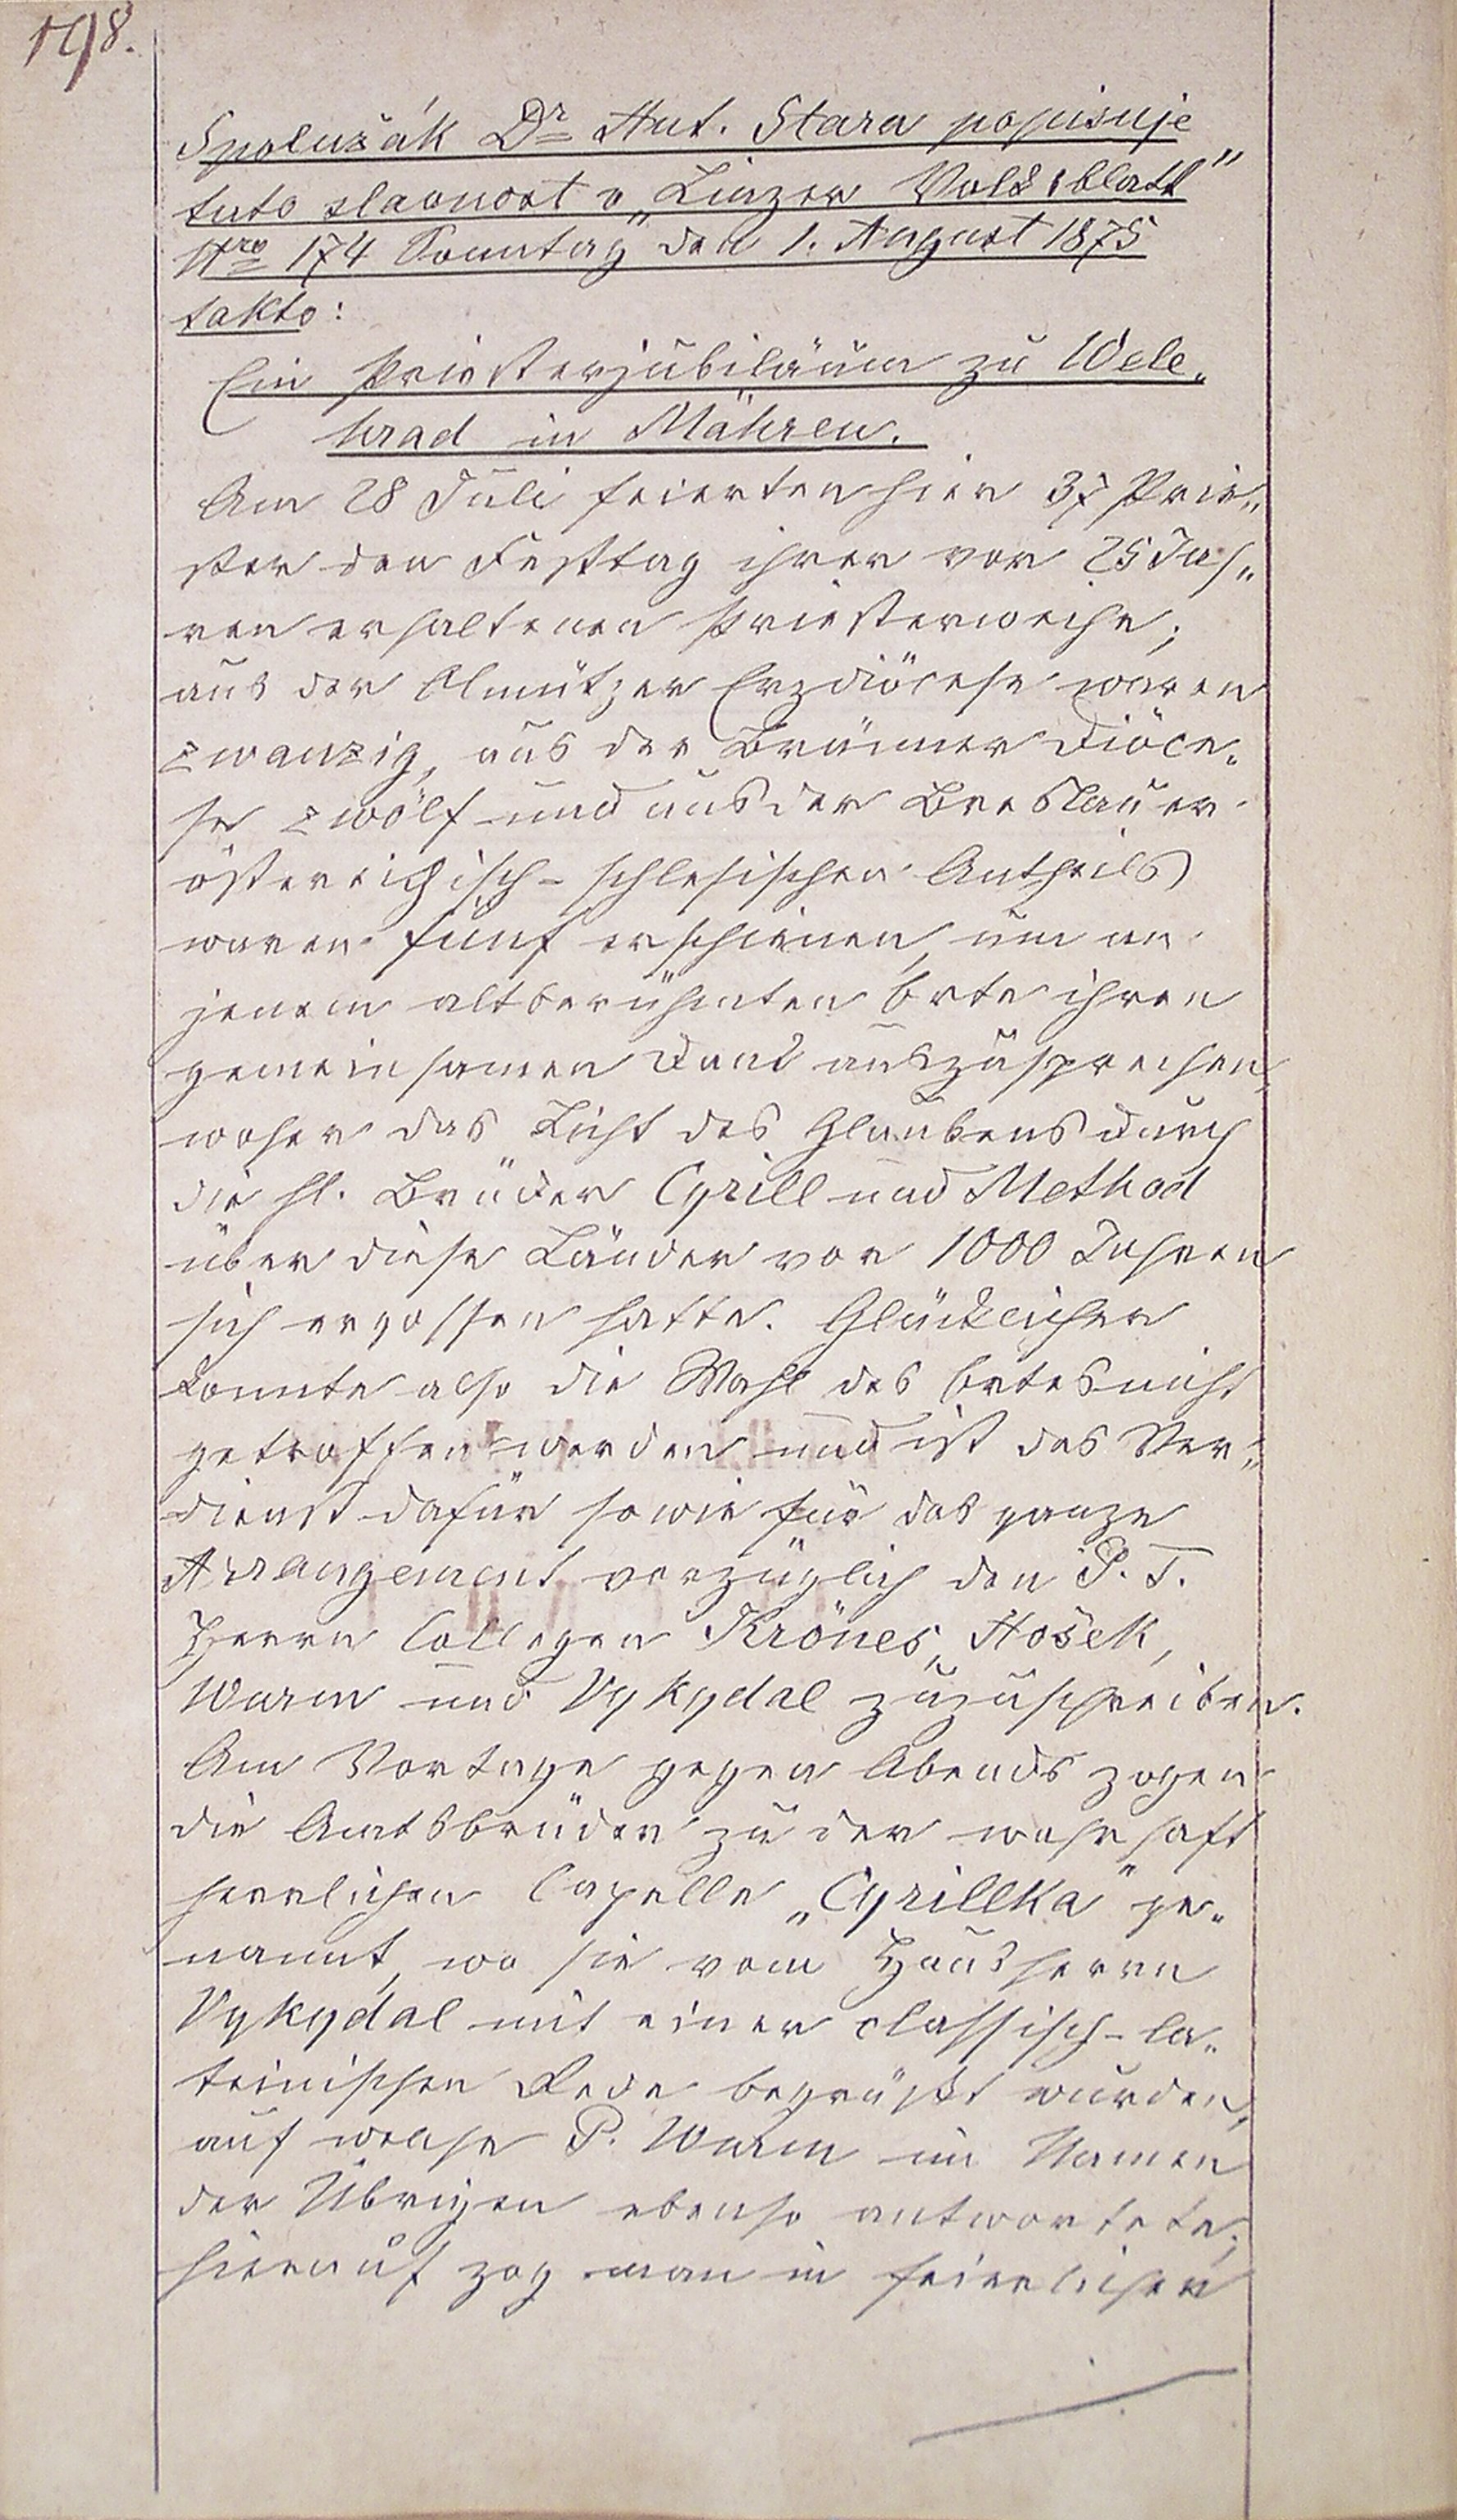 198.
Spolužák Dr Ant. Stara popisuje
tuto slavnost v „Linzer Volksblatt"
Nro 174 Sonntag den 1. August 1875
takto:
Ein Priesterjubiläum zu Wele„
hrad in Mähren.
Am 28 Juli feierten hier 37 Prie„
ster den Festtag ihrer vor 25 Jah„
ren erhaltenen Priesterweihe;
aus der Olmützer Erzdiöcese waren
zwanzig, aus der Brünner Diöce„
se zwölf und aus der Breslauer
österreichisch-schlesischen Antheils
waren fünf erschienen, um an
jenem altberühmten Orte ihren
gemeinsamen Dank auszusprechen,
woher das Licht des Glaubens durch
die hl. Brüder Cyrill und Method
über diese Länder vor 1000 Jahren
sich ergossen hatte. Glücklicher
konnte also die Wahl des Ortes nicht
getroffen werden und ist das Ver„
dienst dafür sowie für das ganze
Arrangement vorzüglich den P. T.
Herrn Collegen Krönes, Hošek,
Wurm und Vykydal zuzuschreiben.
Am Vortage gegen Abends zogen
die Amtsbrüder zu der wahrhaft
herrlichen Capelle „Cyrillka" ge„
nannt, wo sie vom Hausherrn
Vykydal mit einer classisch-la„
teinischen Rede begrüßt wurden,
auf welche P. Wurm im Namen
der Übrigen ebenso antwortete;
hierauf zog man in feierlicher